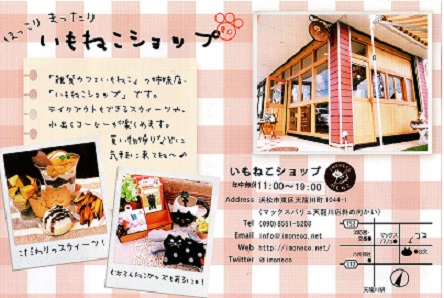 ほっこり まったり
いもねこショップ
「雑貨カフェいもねこ」の姉妹店、
「いもねこショップ」です。
テイクアウトもできるスウィーツや、
水出しコーヒーが楽しめます。
買い物帰りなどに
気軽に来てね〜
こだわりのスウィーツ!
いもねこショップ
年中無休 11:00〜19:00
Address 浜松市東区天龍川町1044-1
(マックスバリュ天龍川店斜め向かい)
Tel
Email info@imoneco.net
Web http://imoneco.net/
Twitter @imoneco
152
マックス
ココ
天竜川駅